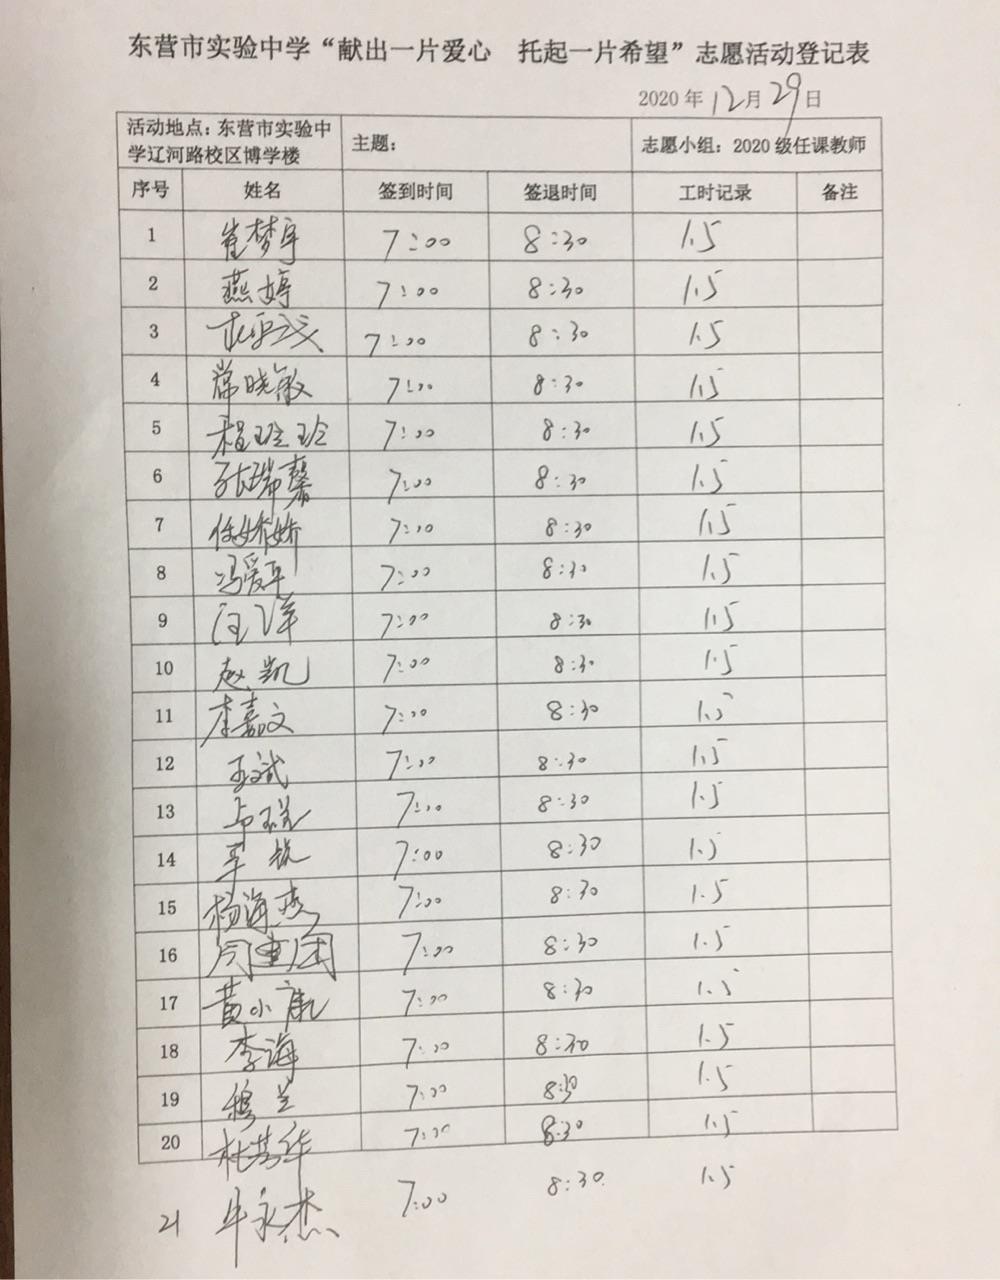 东营市实验中学“献出一片爱心 托起一片希望”志愿活动登记表
2020 年 12月 29日
活动地点：东营市实验中学辽河路校区博学楼 主题： 志愿小组：2020 级任课教师
序号 姓名 签到时间 签退时间 工时记录 备注
1 崔梦宇 7:00 8:30 1.5
2 燕婷 7:00 8:30 1.5
3 7:00 8:30 1.5
4 常晓敏 7:00 8:30 1.5
5 程玲玲 7:00 8:30 1.5
6 张瑞馨 7:00 8:30 1.5
7 任娇娇 7:00 8:30 1.5
8 冯爱平 7:00 8:30 1.5
9 汪洋 7:00 8:30 1.5
10 赵凯 7:00 8:30 1.5
11 李嘉文 7:00 8:30 1.5
12 王斌 7:00 8:30 1.5
13 7:00 8:30 1.5
14 7:00 8:30 1.5
15 杨海燕 7:00 8:30 1.5
16 周建团 7:00 8:30 1.5
17 黄小康 7:00 8:30 1.5
18 李海 7:00 8:30 1.5
19 穆兰 7:00 8:30 1.5
20 杜芳华 7:00 8:30 1.5
21 牛永杰 7:00 8:30 1.5